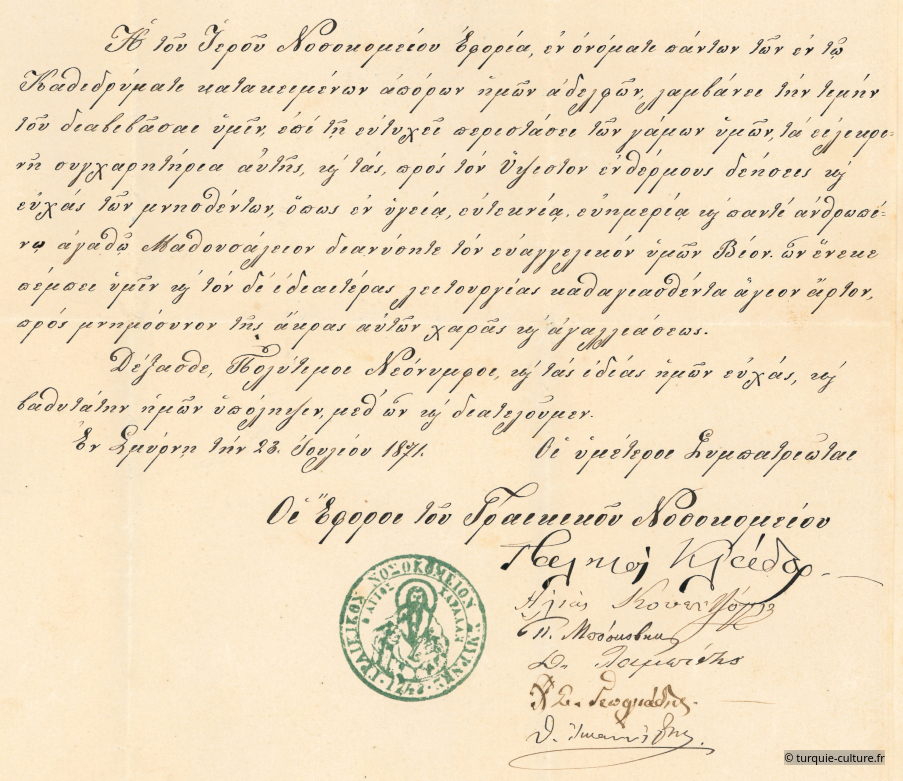 Ἡ τοῦ Ἱεροῦ Νοσοκομείου Ἐφορία, ἐν ὀνόματι πάντων τῶν ἐν τῷ
Καθιδρύματι κατακειμένων ἀπόρων ἡμῶν ἀδελφῶν, λαμβάνει τὴν τιμὴν
τοῦ διαβιβάσαι ὑμῖν, ἐπὶ τῇ εὐτυχεῖ περιστάσει τῶν γάμων ὑμῶν, τὰ εἰλικρι-
νῆ συγχαρητήρια αὐτῆς, κỳ τὰς πρὸς τὸν Ὕψιστον ἐνθέρμους δεήσεις κỳ
εὐχὰς τῶν μνησθέντων, ὅπως ἐν ὑγείᾳ, εὐτεκνίᾳ, εὐημερίᾳ κỳ παντὶ ἀνθρωπί-
νῳ ἀγαθῷ Μαθουσάλειον διανύσητε τὸν εὐαγγελικὸν ὑμῶν Βίον. ὧν ἕνεκε
πέμπει ὑμῖν κỳ τὸν δι' ἰδιαιτέρας λειτουργίας καθαγιασθέντα ἅγιον ἄρτον,
πρὸς μνημόσυνον τῆς ἄκρας αὐτῶν χαρᾶς κỳ ἀγαλλιάσεως.
Δέξασθε, Πολύτιμοι Νεόνυμφοι, κỳ τὰς ἰδίας ἡμῶν εὐχάς, κỳ
βαθυτάτην ἡμῶν ὑπόληψιν, μεθ' ὧν κỳ διατελοῦμεν.
Ἐν Σμύρνῃ τὴν 23. Ἰουλίου 1871.
Οἱ ὑμέτεροι Συμπατριῶται
Οἱ Ἔφοροι τοῦ Γραικικοῦ Νοσοκομείου
ΓΡΑΙΚΙΚΟΝ ΝΟΣΟΚΟΜΕΙΟΝ ΣΜΥΡΝΗΣ
Ο ΑΓΙΟΣ ΧΑΡΑΛΑΜ
Ἠλίας
Π.
Δ.
Σ.
Θ.
© turquie-culture.fr